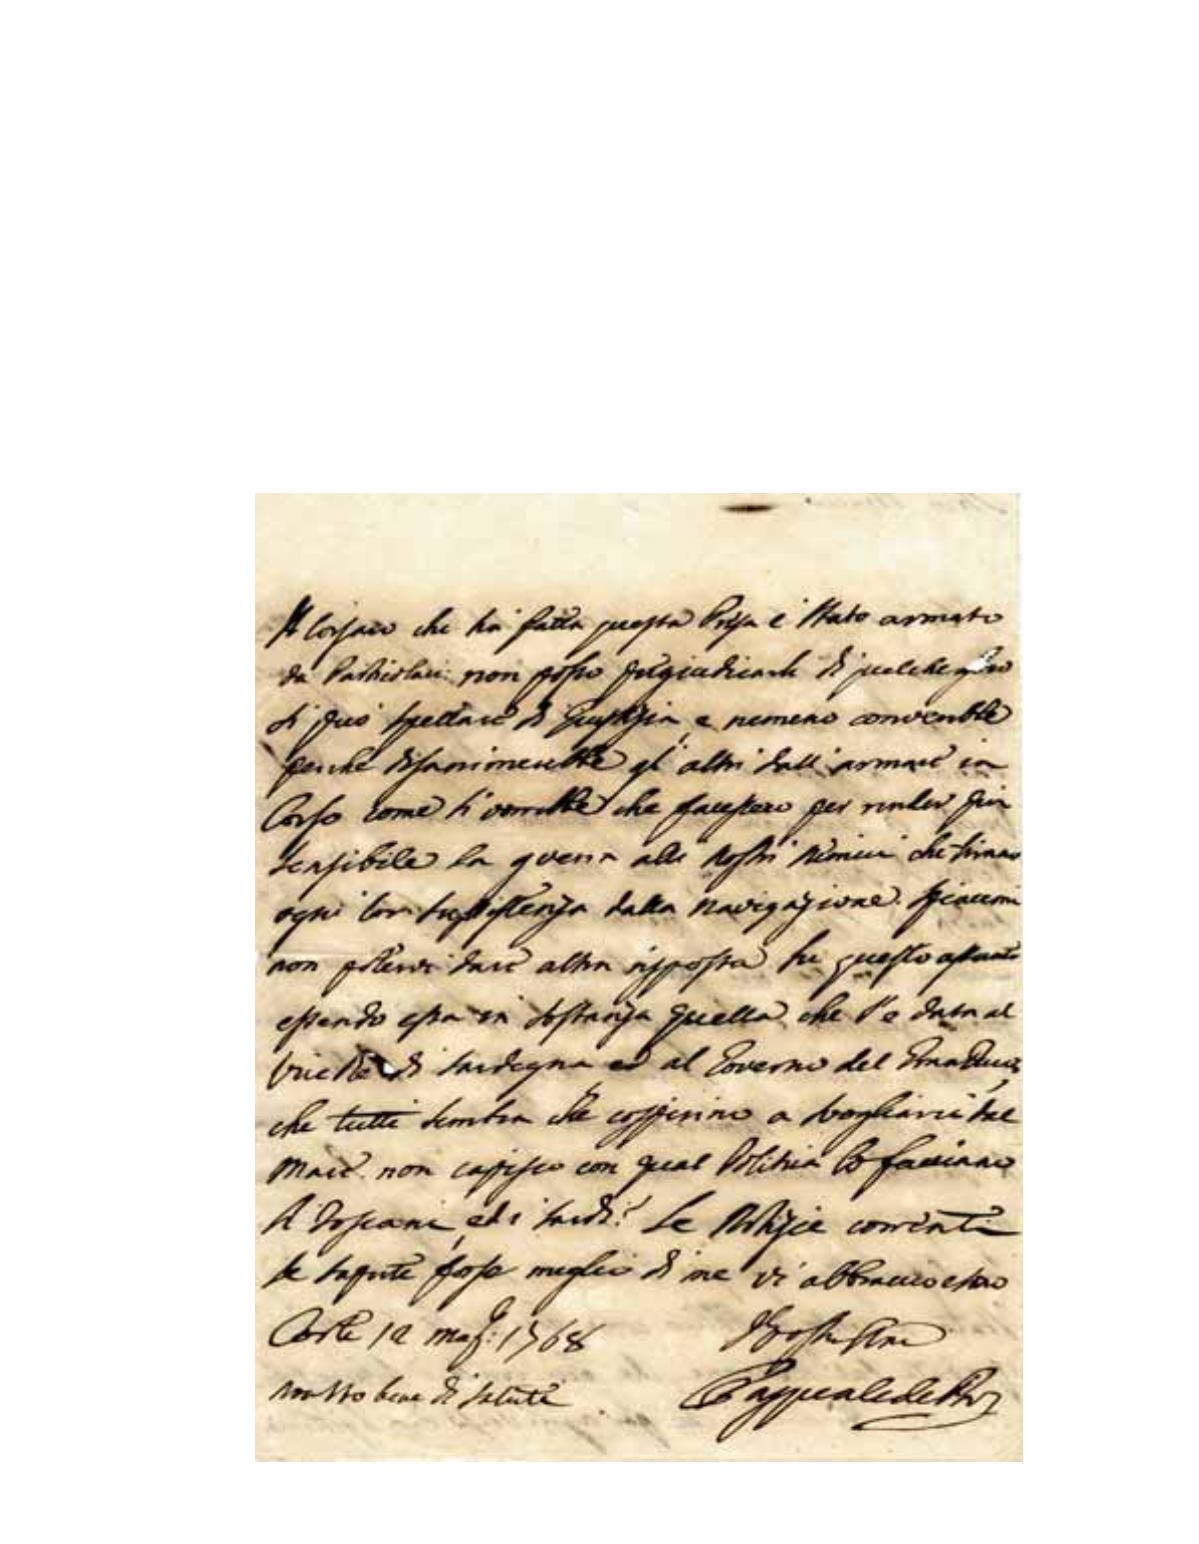 Il Corsaro che ha fatta questa Presa è stato armato
da Particolari: non posso pregiudicarli di quel che
li può spettare di Giustizia, e nemeno converrebbe
perché disanimerebbe gl'altri dall'armare in
Corso come si vorrebbe che facessero per render più
sensibile la guerra alli nostri nemici che tirano
ogni lor sussistenza dalla navigazione. Spiacemi
non potervi dare altra risposta su questo
essendo essa in sostanza quella che s'e data al
Vice Re di Sardegna ed al Governo del
che tutti sembra che cospirino a dal
Mare. non capisco con qual Politica lo facciano
li Toscani, ed i Sardi. Le Notizie correnti
le sapete forse meglio di me vi abbraccio e sono
Corte 12 mag: 1768
non sto bene di salute
Pasquale de Paoli